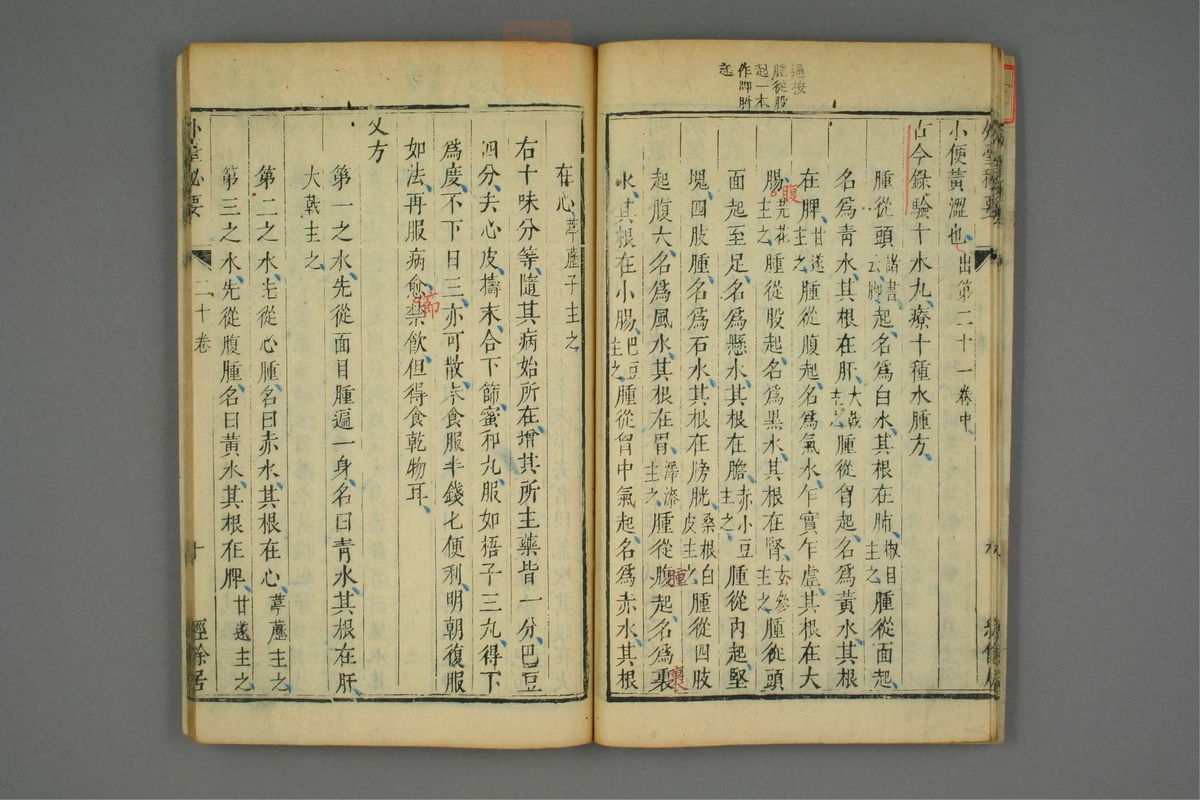 小便黃澀也出第二十一卷中
古今錄驗十水丸療十種水腫方
腫從頭諸書云脚起名爲白水其根在肺椒目主之腫從面起
名爲青水其根在肝大戟主之腫從胷起名爲黃水其根
在脾甘遂主之腫從腹起名爲氣水乍實乍虛其根在大
腸芫花主之腫從股起名爲黑水其根在腎玄參主之腫從頭
面起至足名爲懸水其根在膽赤小豆主之腫從內起堅
塊四肢腫名爲石水其根在膀胱桑根白皮主之腫從四肢
起腹大名爲風水其根在胃澤漆主之腫從腹起名爲裏
水其根在小腸巴豆主之腫從胷中氣起名爲赤水其根
逼按
腫從股
起一本
作脚胕
起
腹
腫
裏
在心葶藶子主之
右十味分等隨其病始所在增其所主藥皆一分巴豆
四分去心皮擣末合下篩蜜和丸服如梧子三丸得下
爲度不下日三亦可散未食服半錢匕便利明朝復服
如法再服病愈禁飲但得食乾物耳
節
又方
第一之水先從面目腫遍一身名曰青水其根在肝
大戟主之
第二之水先從心腫名曰赤水其根在心葶藶主之
第三之水先從腹腫名曰黃水其根在脾甘遂主之
外臺秘要
二十卷
十
經餘居